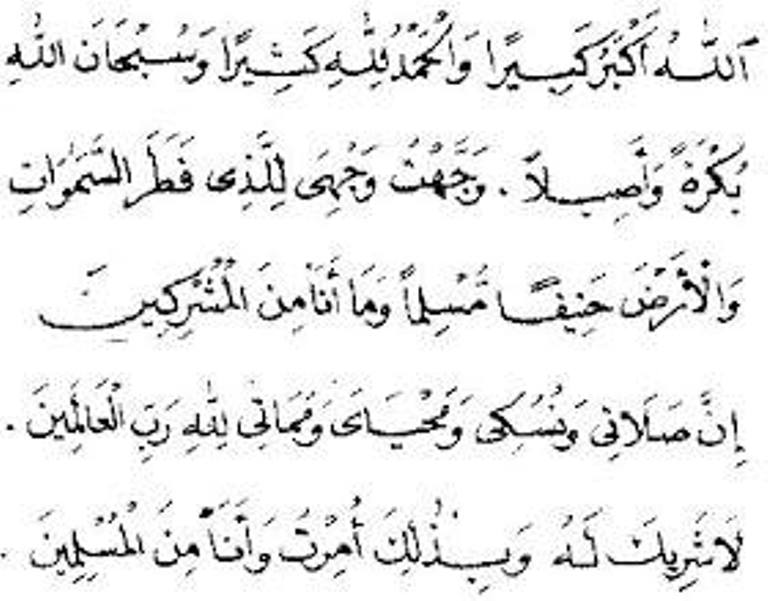 اَللّٰهُ اَكْبَرُ كَبِيْرًا وَالْحَمْدُ لِلّٰهِ كَثِيْرًا وَسُبْحَانَ اللّٰهِ
بُكْرَةً وَأَصِيلاً . وَجَّهْتُ وَجْهِيَ لِلَّذِى فَطَرَ السَّمٰوَاتِ
وَالْأَرْضَ حَنِيفًا مُسْلِماً وَمَا أَنَا مِنَ الْمُشْرِكِينَ
إِنَّ صَلَاتِى وَنُسُكِى وَمَحْيَاىَ وَمَمَاتِى لِلّٰهِ رَبِّ الْعَالَمِينَ .
لَا شَرِيكَ لَهُ وَبِذٰلِكَ أُمِرْتُ وَأَنَا مِنَ الْمُسْلِمِينَ .